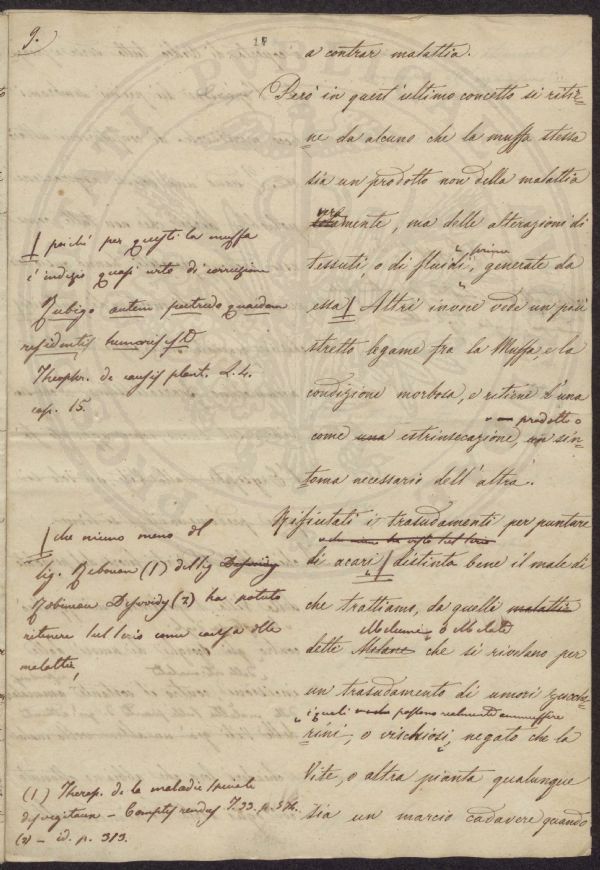 9.
18
a contrar malattia.
Però in quest'ultimo concetto si ritie-
ne da alcuno che la muffa stessa
sia un prodotto non della malattia
veramente, ma delle alterazioni di
tessuti, o di fluidi, prime generate da
essa. Altri invece vede un più
stretto legame fra la Muffa, e la
condizione morbosa, e ritiene l'una
come una estrinsecazione, o prodotto o un sin-
toma necessario dell'altra.
Rifiutati i trasudamenti per punture
di acari distinta bene il male di
che trattiamo, da quelle malattie
dette Melume, o Melata che si rivelano per
un trasudamento di umori zucche-
rini, o vischiosi, i quali possono realmente ammuffire
negato che la
Vite, o altra pianta qualunque
sia un marcio cadavere quando
poiché per questi la muffa
è indizio quasi certo di corruzione
Rubigo autem putredo quaedam
residentis humoris est
Theophr. de causis plant. L. 4.
cap. 15.
che niuno meno del
Sig. Rebouan (1) del Sig.
Robineau Desvoidy (2) ha potuto
ritenere sul serio come causa della
malattia,
(1) Therap. de la maladie speciale
des vegetaux – Comptes rendus T. 33. p.
(2) – id. p. 313.